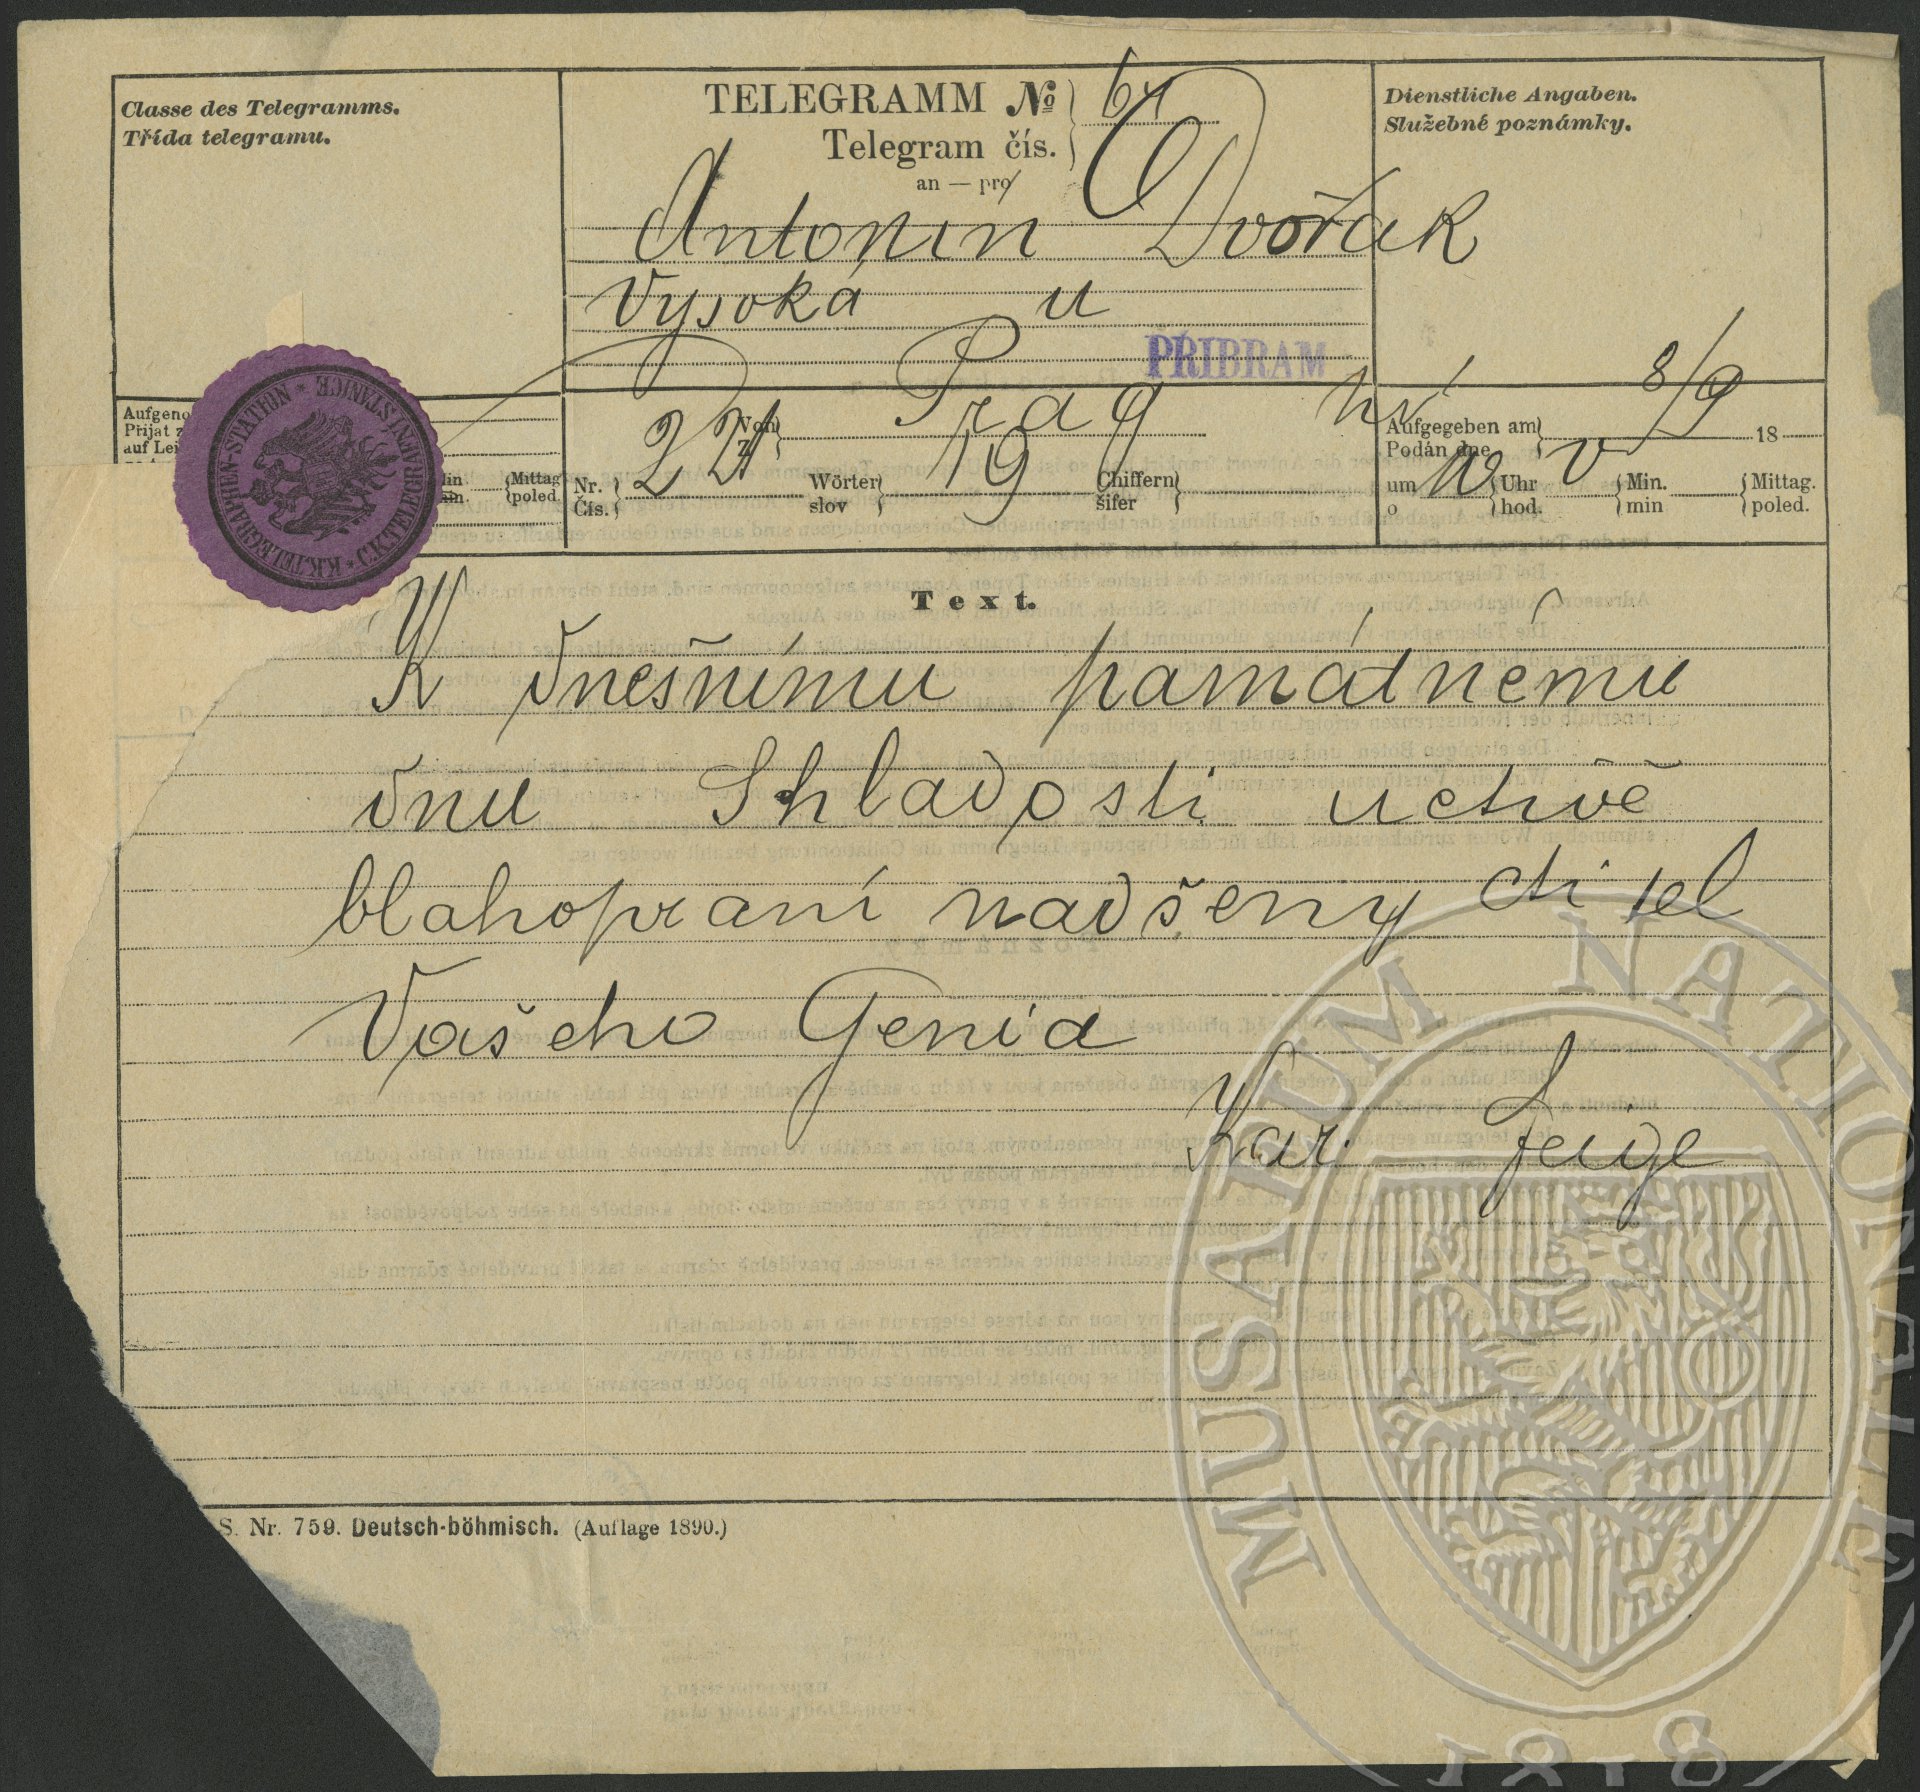 Classe des Telegramms.
Třída telegramu.
TELEGRAMM No
Telegram čís.
64
an — pro
Dienstliche Angaben.
Služebné poznámky.
Antonín Dvořák
Vysoká u
PŘIBRAM
Aufgeno
Přijat z
auf Lei
Mittag
poled.
Von
Z
Prag
Nr.
Čís.
224
Wörter
slov
19
Chiffern
šifer
Aufgegeben am
Podán dne
8/9
18
um
o
10
Uhr
hod.
Min.
min
Mittag.
poled.
K.K. TELEGRAPHEN-STATION * C.K. TELEGRAFNÍ STANICE *
Text.
K dnešnímu památnému
dnu Shladosti uctivě
blahopraní nadšeny ctitel
Vašeho Genia
Kar. Teige
S. Nr. 759. Deutsch-böhmisch. (Auflage 1890.)
MUSAEUM NATIONALE
1818